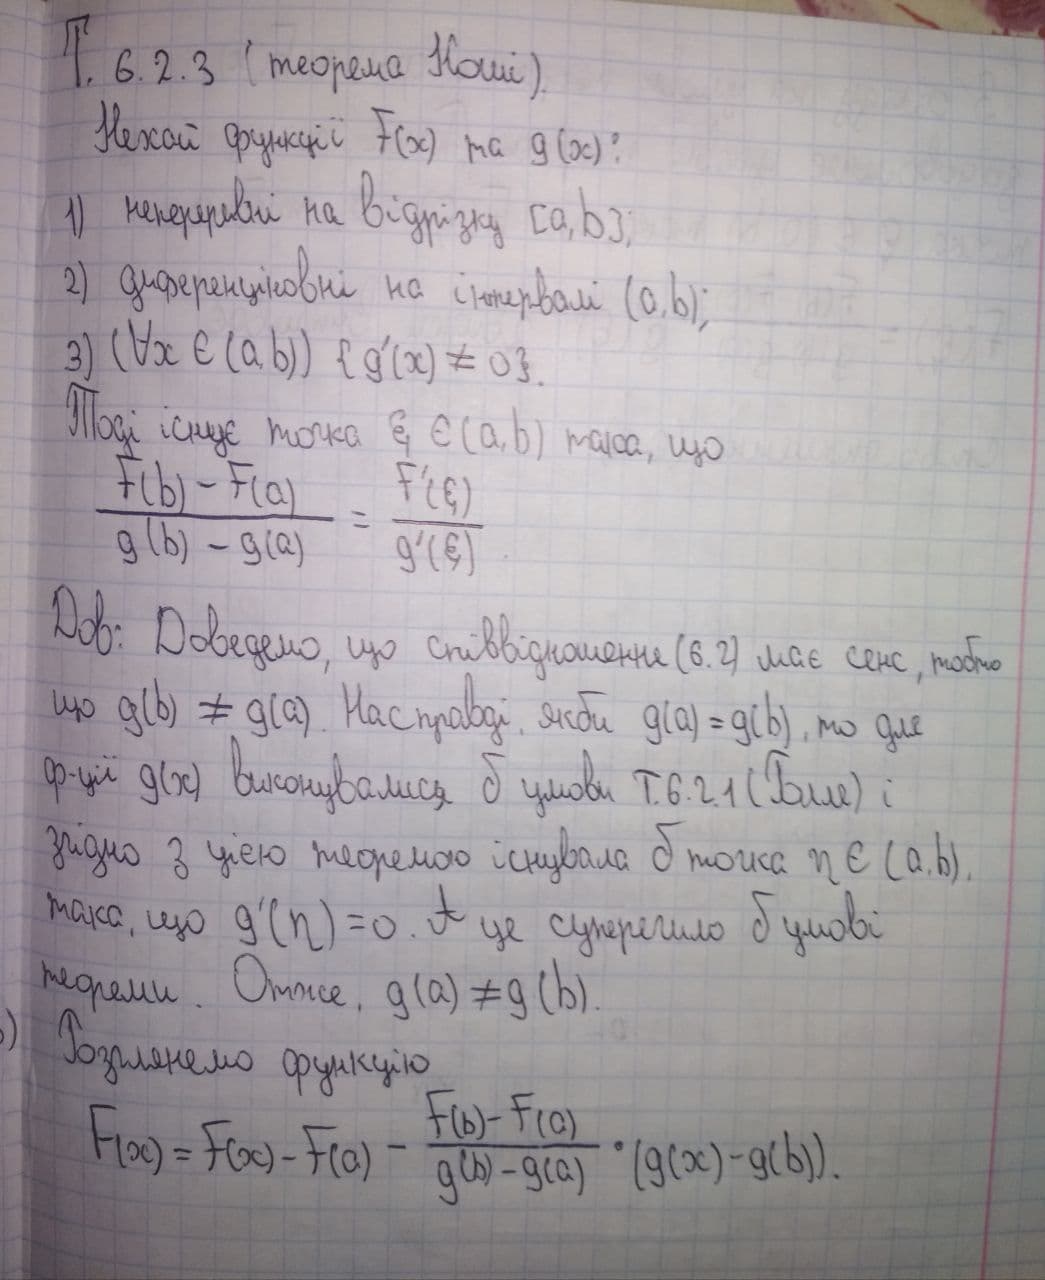 Т. 6.2.3 (теорема Коші).
Нехай функції F(x) та g(x):
1) неперервні на відрізку [a,b];
2) диференційовні на інтервалі (a,b);
3) (∀x ∈ (a,b)) {g'(x) ≠ 0}.
Тоді існує точка ξ ∈ (a,b) така, що
F(b) - F(a) / g(b) - g(a) = F'(ξ) / g'(ξ)
Дов: Доведемо, що співвідношення (6.2) має сенс, тобто
що g(b) ≠ g(a). Насправді, якби g(a) = g(b), то для
ф-ції g(x) виконувалися б умови Т.6.2.1 (Ролля) і
згідно з цією теоремою існувала б точка η ∈ (a,b),
така, що g'(η) = 0. А це суперечило б умові
теореми. Отже, g(a) ≠ g(b).
Розглянемо функцію
F(x) = F(x) - F(a) - F(b) - F(a) / g(b) - g(a) · (g(x) - g(b)).